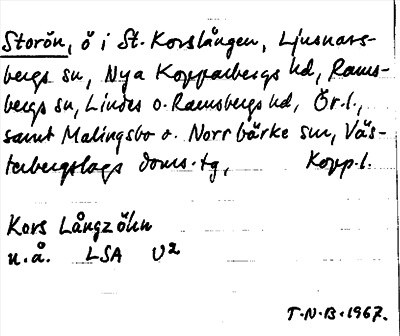 Storön, ö i St. Korslången, Ljusnars-
bergs sn, Nya Kopparbergs hd, Rams-
bergs sn, Lindes o. Ramsbergs hd, Ör.l.,
samt Malingsbo o. Norrbärke snr, Väs-
terbergslags doms.tg, Kopp.l.
Kors Långzöhn
u.å. LSA U2
T.N.B. 1967.